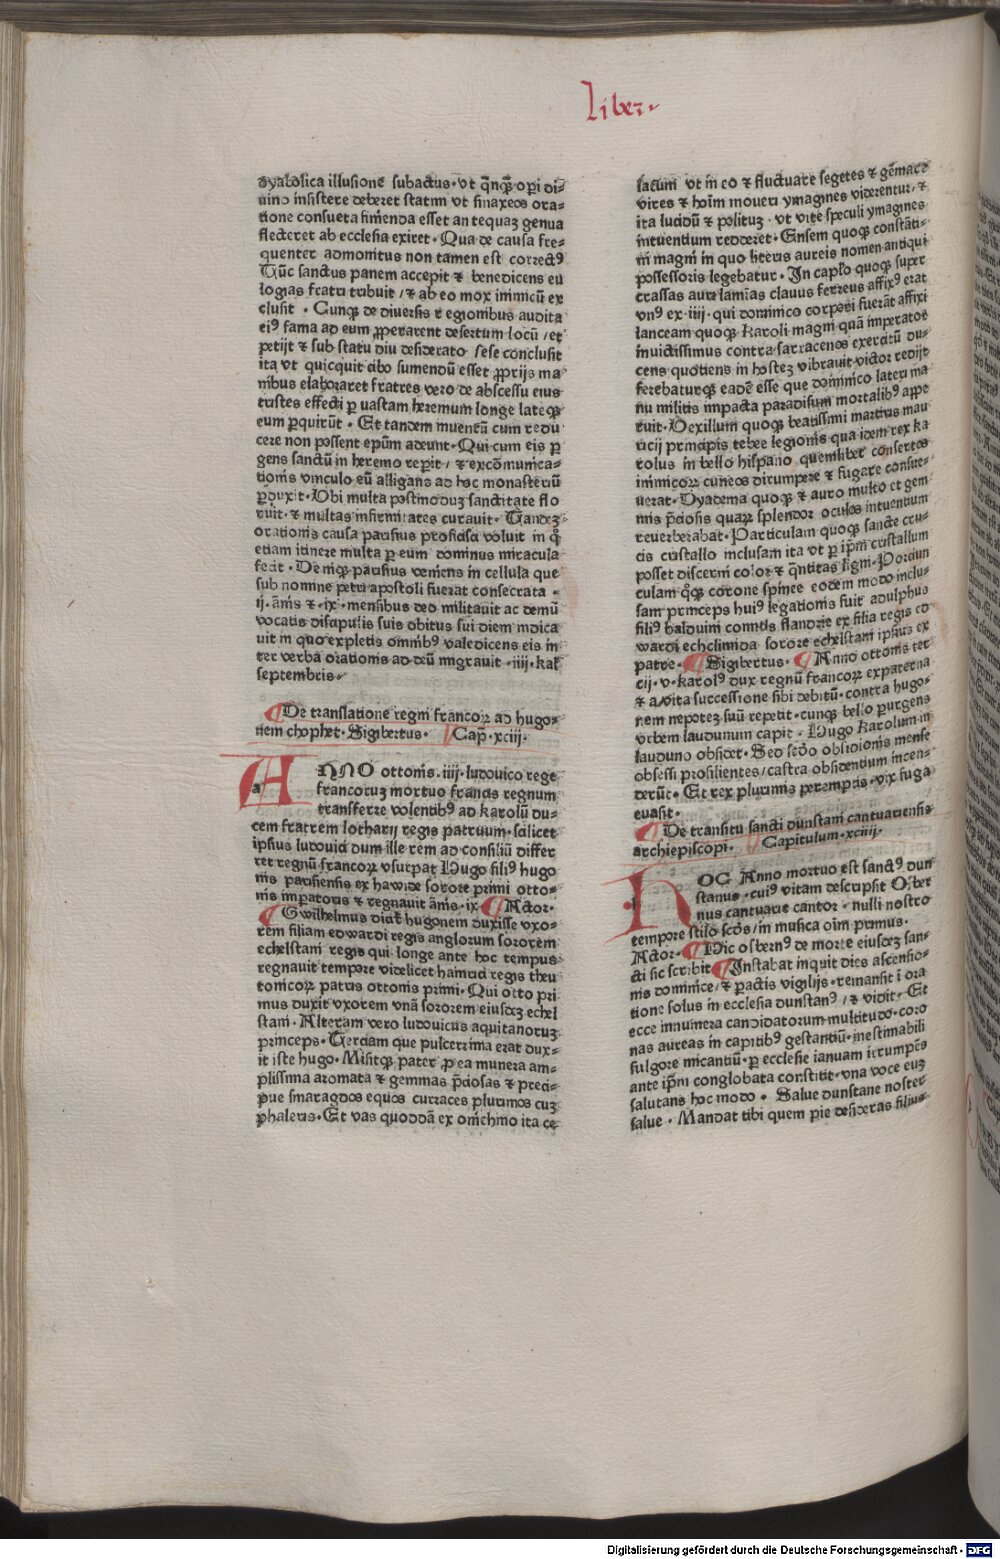 liber.
dyabolica illusione subactus. vt qn̄qꝫ op̄i di⸗
uino insistere deberet statim vt sinaxeos ora⸗
tione consueta finienda esset antequaꝫ genua
flecteret ab ecclesia exiret. Qua de causa fre⸗
quenter admonitus non tamen est correctꝰ
Tūc sanctus panem accepit ⁊ benedicens eu
logias fratri tribuit / ⁊ ab eo mox inimicū ex
clusit. Cunqꝫ de diuersis ⁊ egionibus audita
eiꝰ fama ad eum ꝓperarent desertum locū / et
petijt ⁊ sub statu diu desiderato sese conclusit
ita vt quicquit cibo sumendū esset ꝓprijs ma
nibus elaboraret fratres vero de abscessu eius
tristes effecti ꝑ uastam heremum longe lateqꝫ
eum ꝑquirūt. Et tandem inuentū cum redu
cere non possent epūm adeunt. Qui cum eis ꝑ
gens sanctū in heremo repit / ⁊ excōmunica⸗
tionis vinculo eū alligans ad hoc monasteriū
ꝑduxit. Vbi multa postmoduꝫ sanctitate flo
ruit. ⁊ multas infirmitates curauit. Tandeꝫ
orationis causa parisius proficisci voluit in qͦ
etiam itinere multa ꝑ eum dominus miracula
fecit. Deniqꝫ parisius veniens in cellula que
sub nomine petri apostoli fuerat consecrata
ij. ānis ⁊ .ix. mensibus deo militauit ac demū
vocatis discipulis suis obitus sui diem indica
uit in quo expletis omnibꝰ valedicens eis in
ter verba orationis ad deū migrauit .iiij. kal
septembris.
¶De translatione regni francoꝝ ad hugo⸗
nem chophet. Sigibertus. ¶Cap̄. xciij.
ANNO ottonis. iiij. ludouico rege
francoruꝫ mortuo francis regnum
transferre volentibꝰ ad karolū du⸗
cem fratrem lotharij regis patruum. scilicet
ipsius ludouici dum ille rem ad consiliū differ
ret regnū francoꝝ vsurpat Hugo filiꝰ hugo
nis parisiensis ex hawide sorore primi otto⸗
nis imperatoris ⁊ regnauit ānis. ix. ¶Actor.
¶Gwilhelmus dicit hugonem duxisse vxo⸗
rem filiam edwardi regis anglorum sororem
echelstani regis qui longe ante hoc tempus
regnauit tempore videlicet hainrici regis theu
tonicoꝝ patris ottonis primi. Qui otto pri
mus duxit vxorem vnā sororem eiusdeꝫ echel
stani. Alteram vero ludouicus aquitanoruꝫ
princeps. Terciam que pulcerrima erat dux⸗
it iste hugo. Misitqꝫ pater ꝓ ea munera am⸗
plissima aromata ⁊ gemmas p̄ciosas ⁊ preci⸗
pue smaragdos equos curraces plurimos cuꝫ
phaleris. Et vas quoddā ex onichino ita ce
latum vt in eo ⁊ fluctuare segetes ⁊ gēmare
vites ⁊ hoim̄ moueri ymagines viderentur / ⁊
ita lucidū ⁊ polituꝫ. vt vice speculi ymagines
intuentium redderet. Ensem quoqꝫ constāti⸗
ni magni in quo literis aureis nomen antiqui
possessoris legebatur. In cap̄lo quoqꝫ super
crassas auri lamīas clauus ferreus affixꝰ erat
vnꝰ ex .iiij. qui dominico corpori fuerāt affixi
lanceam quoqꝫ karoli magni quā imperator
inuictissimus contra sarracenos exercitū du⸗
cens quotiens in hosteꝫ vibrauit victor redijt
ferebaturqꝫ eadē esse que dominico lateri ma
nu militis impacta paradisum mortalibꝰ ape
ruit. Vexillum quoqꝫ beatissimi martiris mau
ricij principis tebee legionis qua idem rex ka
rolus in bello hispano quemlibet confertos
inimicoꝝ cuneos dirumpere ⁊ fugare consue⸗
uerat. Dyadema quoqꝫ ⁊ auro multo et gem
mis p̄ciosis quaꝝ splendor oculos intuentium
reuerberabat. Particulam quoqꝫ sancte cru⸗
cis cristallo inclusam ita vt ꝑ ip̄m cristallum
posset discerni color ⁊ qn̄titas ligni. Porciun
culam qͦqꝫ corone spinee eodem modo inclu⸗
sam princeps huiꝰ legationis fuit adulphus
filiꝰ balduini comitis flandrie ex filia regis ed
wardi echelinida sorore echelstani ipsius ex
patre. ¶Sigibertus. ¶Anno ottonis ter
cij. v. karolꝰ dux regnū francoꝝ ex paterna
⁊ auita successione sibi debitū. contra hugo⸗
nem nepoteꝫ suū repetit. cunqꝫ bello ꝑurgens
vrbem laudunum capit. Hugo karolum in
lauduno obsidet. Sed scd̄o obsidionis mense
obsessi prosilientes / castra obsidentium incen⸗
derūt. Et rex plurimis peremptis. vix fuga
euasit.
¶De transitu sancti dunstani cantuariensis
archiepiscopi. ¶Capitulum. xciiij.
HOC Anno mortuo est sanctꝰ dun
stanus. cuiꝰ vitam descripsit Osber
nus cantuarie cantor. nulli nostro
tempore stilo scd̄s / in musica oīm primus.
Actor. ¶Hic osbernꝰ de morte eiusdeꝫ san⸗
cti sic scribit ¶Instabat inquit dies ascensio⸗
nis dominice / ⁊ ꝑactis vigilijs. remansit ī ora
tione solus in ecclesia dunstanꝰ / ⁊ vidit. Et
ecce innumera candidatorum multitudo. coro
nas aureas in capitibꝰ gestantiū. inestimabili
fulgore micantiū. ꝑ ecclesie ianuam irrumpēs
ante ip̄m conglobata constitit. vna voce euꝫ
salutans hoc modo. Salue dunstane noster
salue. Mandat tibi quem pie desideras filius
Digitalisierung gefördert durch die Deutsche Forschungsgemeinschaft - DFG